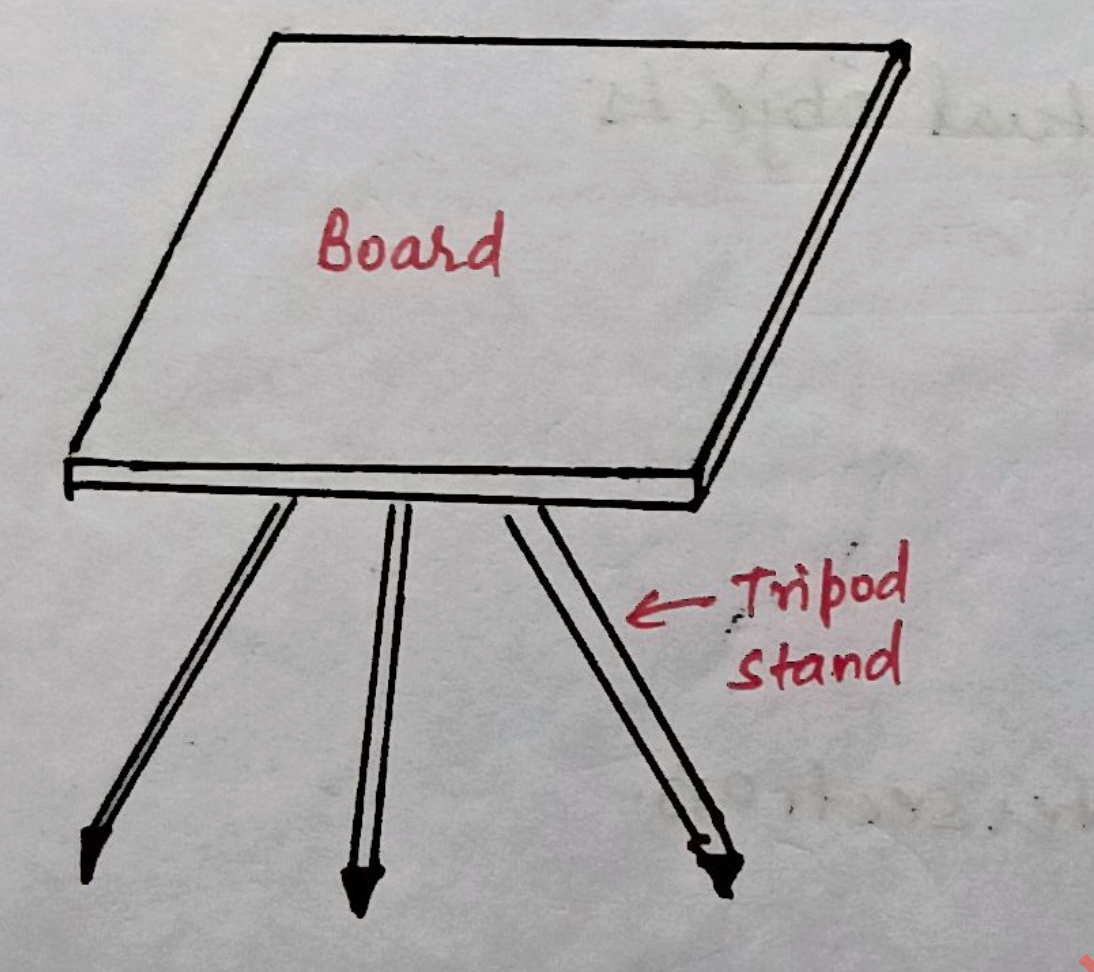 Board
Tripod
stand